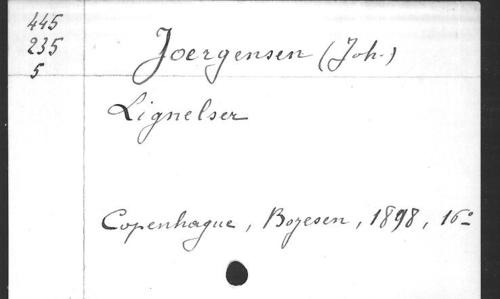 445
235
5
Joergensen (Joh.)
Lignelser
Copenhague, Bojesen, 1898, 16°